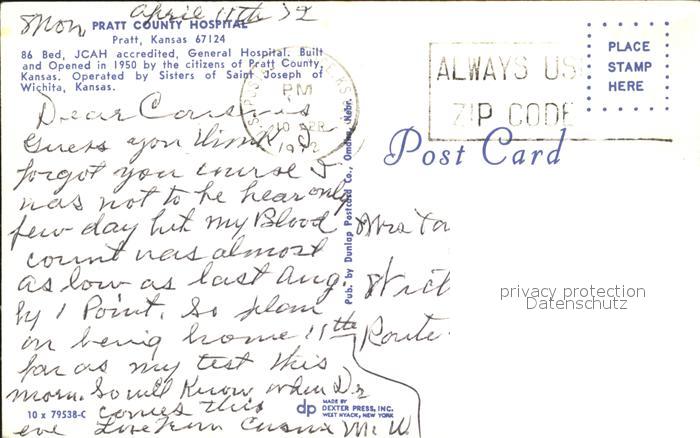 Mon April 11th 72
PRATT COUNTY HOSPITAL
Pratt, Kansas 67124
86 Bed, JCAH accredited, General Hospital. Built
and Opened in 1950 by the citizens of Pratt County,
Kansas. Operated by Sisters of Saint Joseph of
Wichita, Kansas.
Dear Cousins
Guess you think I
forgot you course I
was not to be hear only
few day but my Blood
count was almost
as low as last Aug
by 1 Point. So plan
on being home 11th
far as my test this
morn. So will Know when Dr
comes this
eve Love from Cousin M. W.
10 x 79538-C
dp MADE BY
DEXTER PRESS, INC.
WEST NYACK, NEW YORK
Pub. by Dunlap Postcard Co., Omaha, Nebr.
PM
10 APR
1972
ALWAYS US
ZIP CODE
PLACE
STAMP
HERE
Post Card
Mrs
Wict
Route
privacy protection
Datenschutz